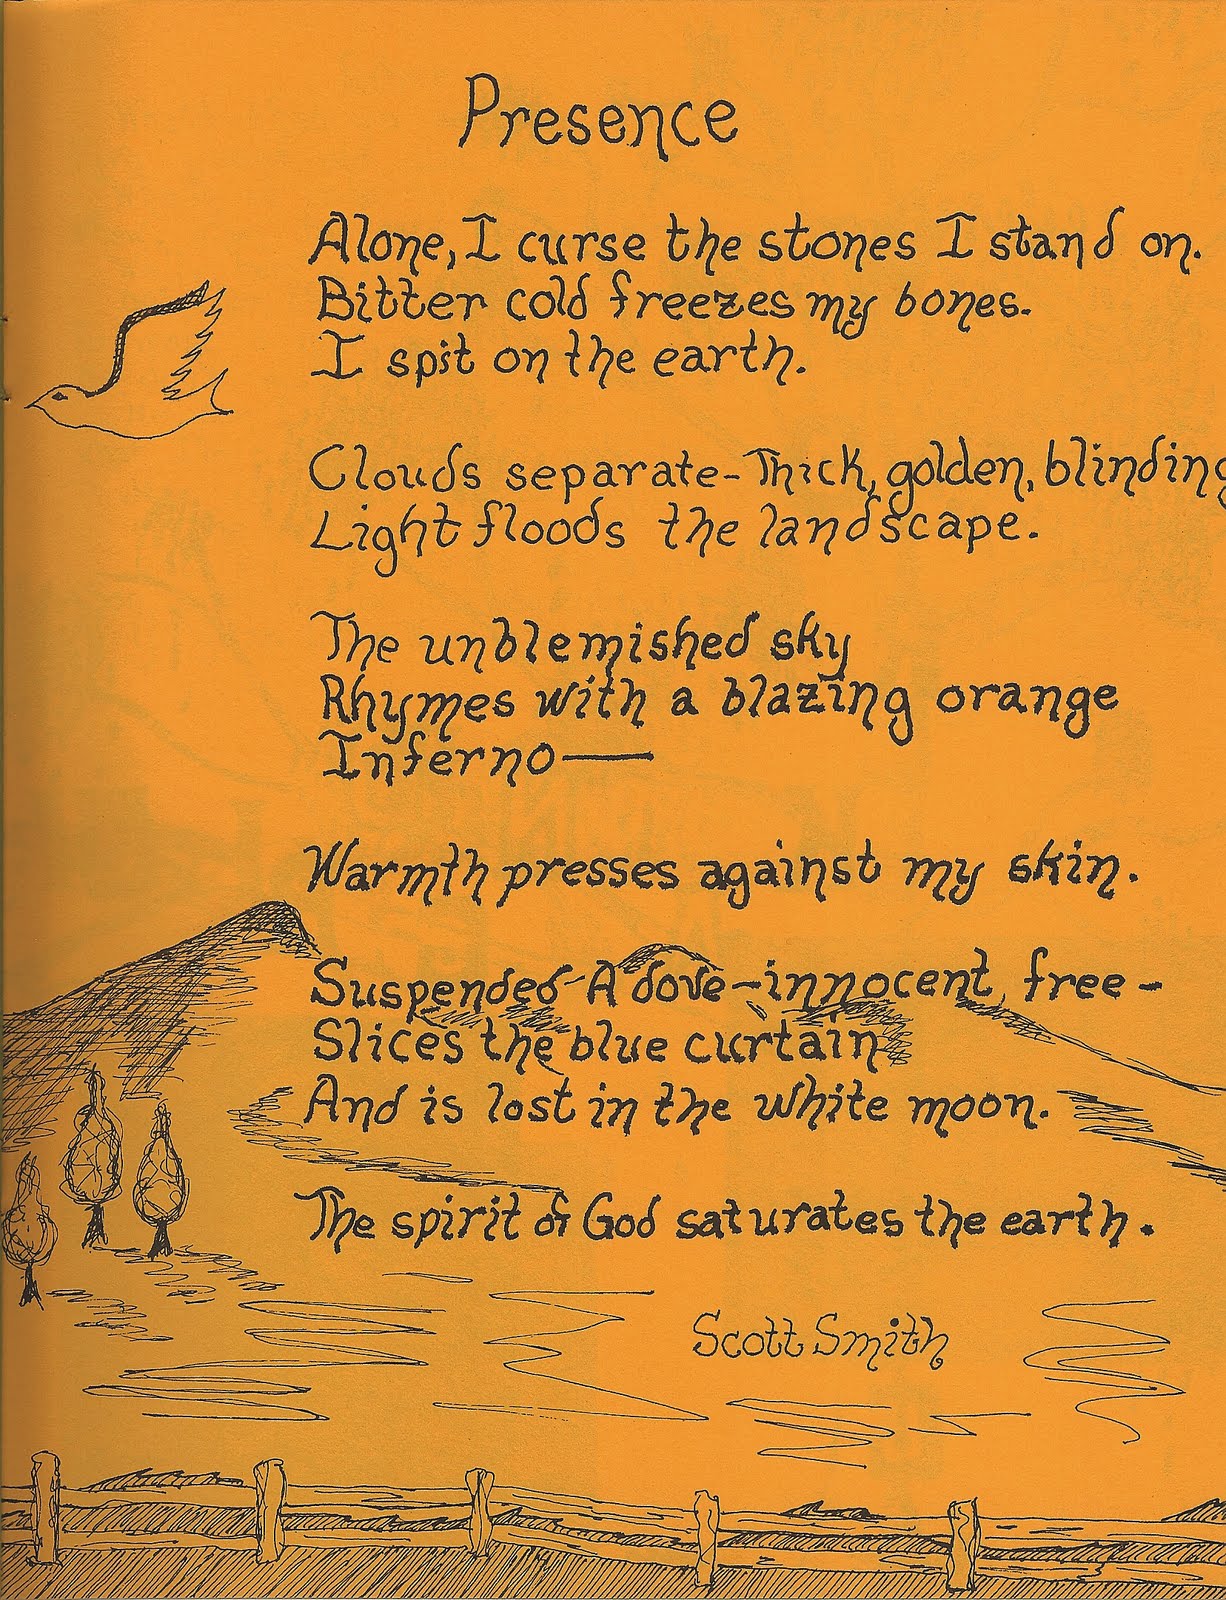 Presence
Alone, I curse the stones I stand on.
Bitter cold freezes my bones.
I spit on the earth.
Clouds separate-Thick, golden, blinding
Light floods the landscape.
The unblemished sky
Rhymes with a blazing orange
Inferno—
Warmth presses against my skin.
Suspended-A dove-innocent, free-
Slices the blue curtain
And is lost in the white moon.
The spirit of God saturates the earth.
Scott Smith